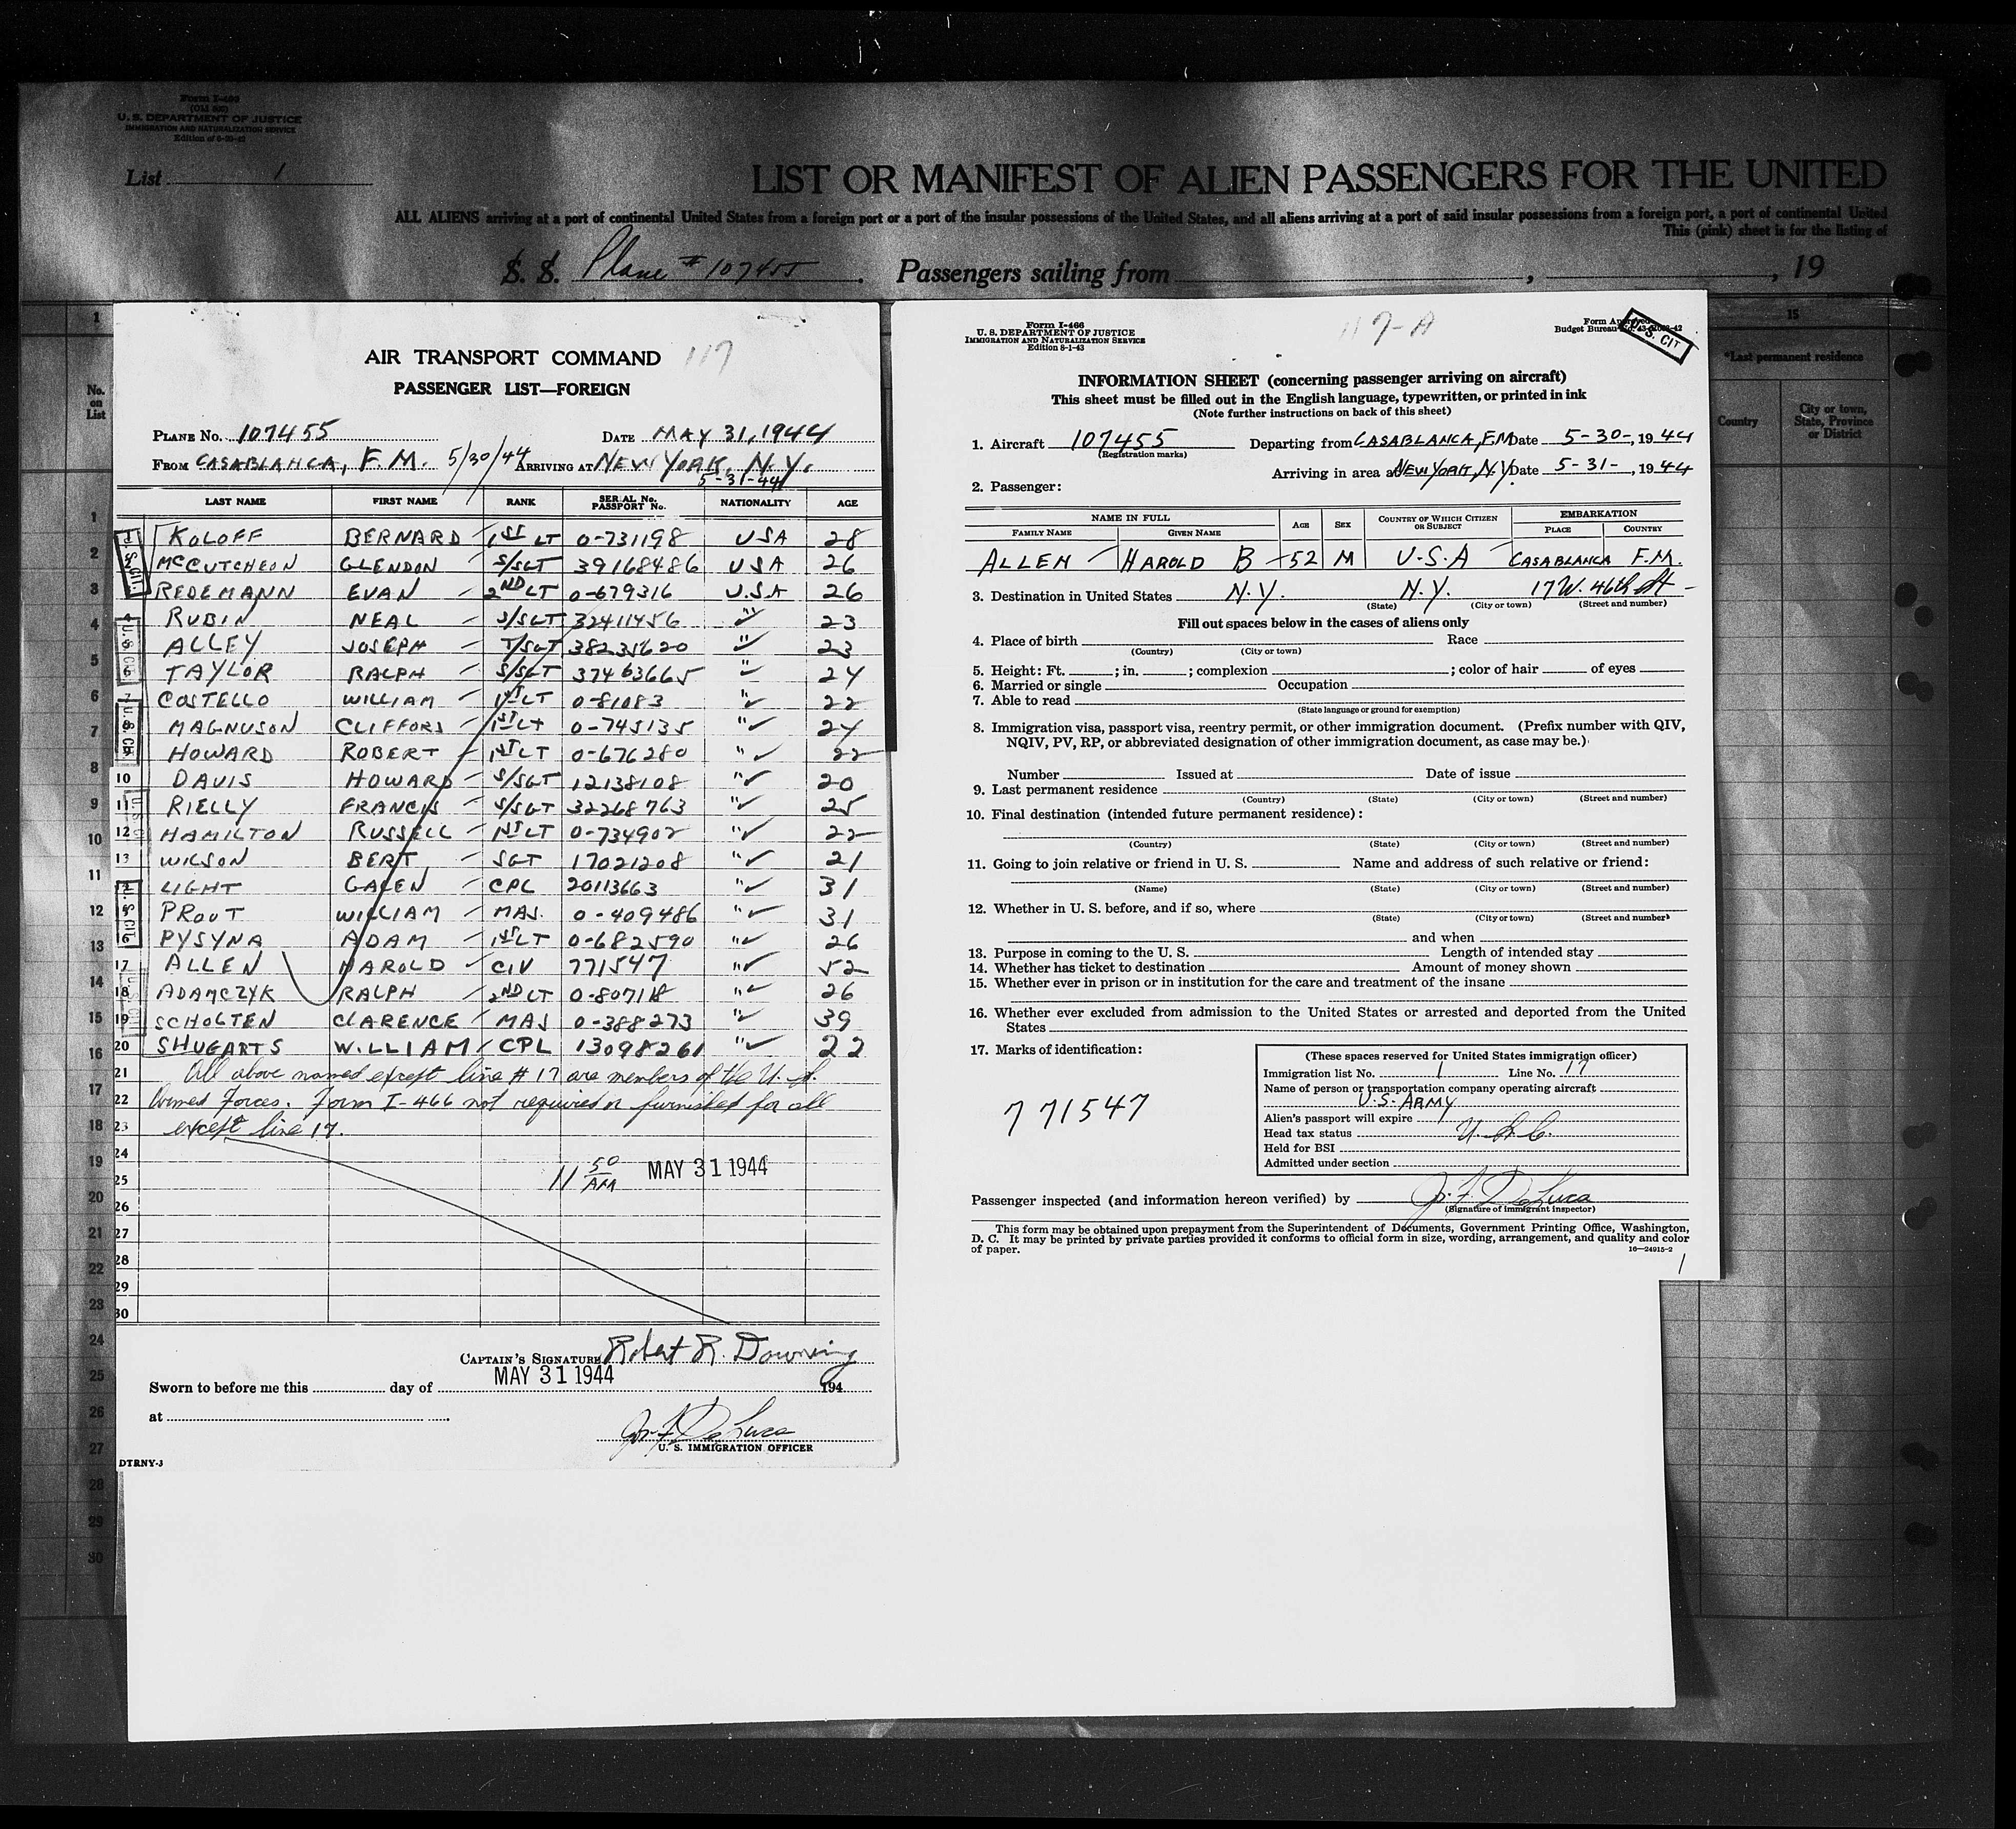 Form I-466
(Old 500)
U. S. DEPARTMENT OF JUSTICE
IMMIGRATION AND NATURALIZATION SERVICE
List 1
LIST OR MANIFEST OF ALIEN PASSENGERS FOR THE UNITED
ALL ALIENS arriving at a port of continental United States from a foreign port or a port of the insular possessions of the United States, and all aliens arriving at a port of said insular possessions from a foreign port, a port of continental United
This (pink) sheet is for the listing of
S. S. Plane # 107455. Passengers sailing from , , 19
No. on List
15
*Last permanent residence
Country
City or town, State, Province or District
AIR TRANSPORT COMMAND 117
PASSENGER LIST—FOREIGN
PLANE NO. 107455 DATE MAY 31, 1944
FROM CASABLANCA, F.M. 5/30/44 ARRIVING AT NEW YORK, N.Y.
5-31-44
LAST NAME FIRST NAME RANK SERIAL NO. PASSPORT NO. NATIONALITY AGE
KOLOFF BERNARD 1ST LT 0-731198 USA 28
MCCUTCHEON GLENDON S/SGT 39168486 USA 26
3 REDEMANN EVAN 2ND LT 0-679316 U.SA 26
RUBIN NEAL S/SGT 32411456 " 23
ALLEY JOSEPH T/SGT 38235620 " 23
TAYLOR RALPH S/SGT 37463665 " 24
7 COSTELLO WILLIAM 1ST LT 0-81083 " 22
MAGNUSON CLIFFORS 1ST LT 0-745135 " 24
HOWARD ROBERT 1ST LT 0-676280 " 22
10 DAVIS HOWARD S/SGT 12138108 " 20
11 RIELLY FRANCIS S/SGT 32268763 " 25
12 HAMILTON RUSSELL 1ST LT 0-734902 " 22
13 WILSON BERT SGT 17021208 " 21
LIGHT GALEN CPL 20113663 " 31
PROUT WILLIAM MAJ. 0-409486 " 31
PYSYNA ADAM 1ST LT 0-682590 " 26
17 ALLEN HAROLD CIV 771547 " 52
18 ADAMCZYK RALPH 2ND LT 0-807118 " 26
19 SCHOLTEN CLARENCE MAJ 0-388273 " 39
20 SHUGARTS WILLIAM CPL 13098261 " 22
21 All above named except line # 17 are members of the U. S.
22 Armed Forces. Form I-466 not required or furnished for all
23 except line 17.
24
25 11 50 AM MAY 31 1944
26
27
28
29
30
CAPTAIN'S SIGNATURE Robert R. Downing
MAY 31 1944
Sworn to before me this day of 194
at
Jos. F. DeLuca
U. S. IMMIGRATION OFFICER
DTRNY-3
Form I-466
U. S. DEPARTMENT OF JUSTICE
IMMIGRATION AND NATURALIZATION SERVICE
Edition 8-1-43
117-A
Form Approved
Budget Bureau No.
U.S. CIT
INFORMATION SHEET (concerning passenger arriving on aircraft)
This sheet must be filled out in the English language, typewritten, or printed in ink
(Note further instructions on back of this sheet)
1. Aircraft 107455 Departing from CASABLANCA, F.M Date 5-30-, 1944
(Registration marks)
Arriving in area at NEW YORK, N.Y. Date 5-31-, 1944
2. Passenger:
NAME IN FULL AGE SEX COUNTRY OF WHICH CITIZEN OR SUBJECT EMBARKATION
FAMILY NAME GIVEN NAME PLACE COUNTRY
ALLEN HAROLD B 52 M U.S.A CASABLANCA F.M.
3. Destination in United States N.Y. N.Y. 17 W. 46th St
(State) (City or town) (Street and number)
Fill out spaces below in the cases of aliens only
4. Place of birth Race
(Country) (City or town)
5. Height: Ft. ; in. ; complexion ; color of hair of eyes
6. Married or single Occupation
7. Able to read
(State language or ground for exemption)
8. Immigration visa, passport visa, reentry permit, or other immigration document. (Prefix number with QIV,
NQIV, PV, RP, or abbreviated designation of other immigration document, as case may be.)
Number Issued at Date of issue
9. Last permanent residence
(Country) (State) (City or town) (Street and number)
10. Final destination (intended future permanent residence):
(Country) (State) (City or town) (Street and number)
11. Going to join relative or friend in U. S. Name and address of such relative or friend:
(Name) (State) (City or town) (Street and number)
12. Whether in U. S. before, and if so, where
(State) (City or town) (Street and number)
and when
13. Purpose in coming to the U. S. Length of intended stay
14. Whether has ticket to destination Amount of money shown
15. Whether ever in prison or in institution for the care and treatment of the insane
16. Whether ever excluded from admission to the United States or arrested and deported from the United
States
17. Marks of identification:
771547
(These spaces reserved for United States immigration officer)
Immigration list No. 1 Line No. 17
Name of person or transportation company operating aircraft
U.S. ARMY
Alien's passport will expire
Head tax status U.S.C.
Held for BSI
Admitted under section
Passenger inspected (and information hereon verified) by Jos. F. DeLuca
(Signature of immigrant inspector)
This form may be obtained upon prepayment from the Superintendent of Documents, Government Printing Office, Washington,
D. C. It may be printed by private parties provided it conforms to official form in size, wording, arrangement, and quality and color
of paper. 16—24915-2
1